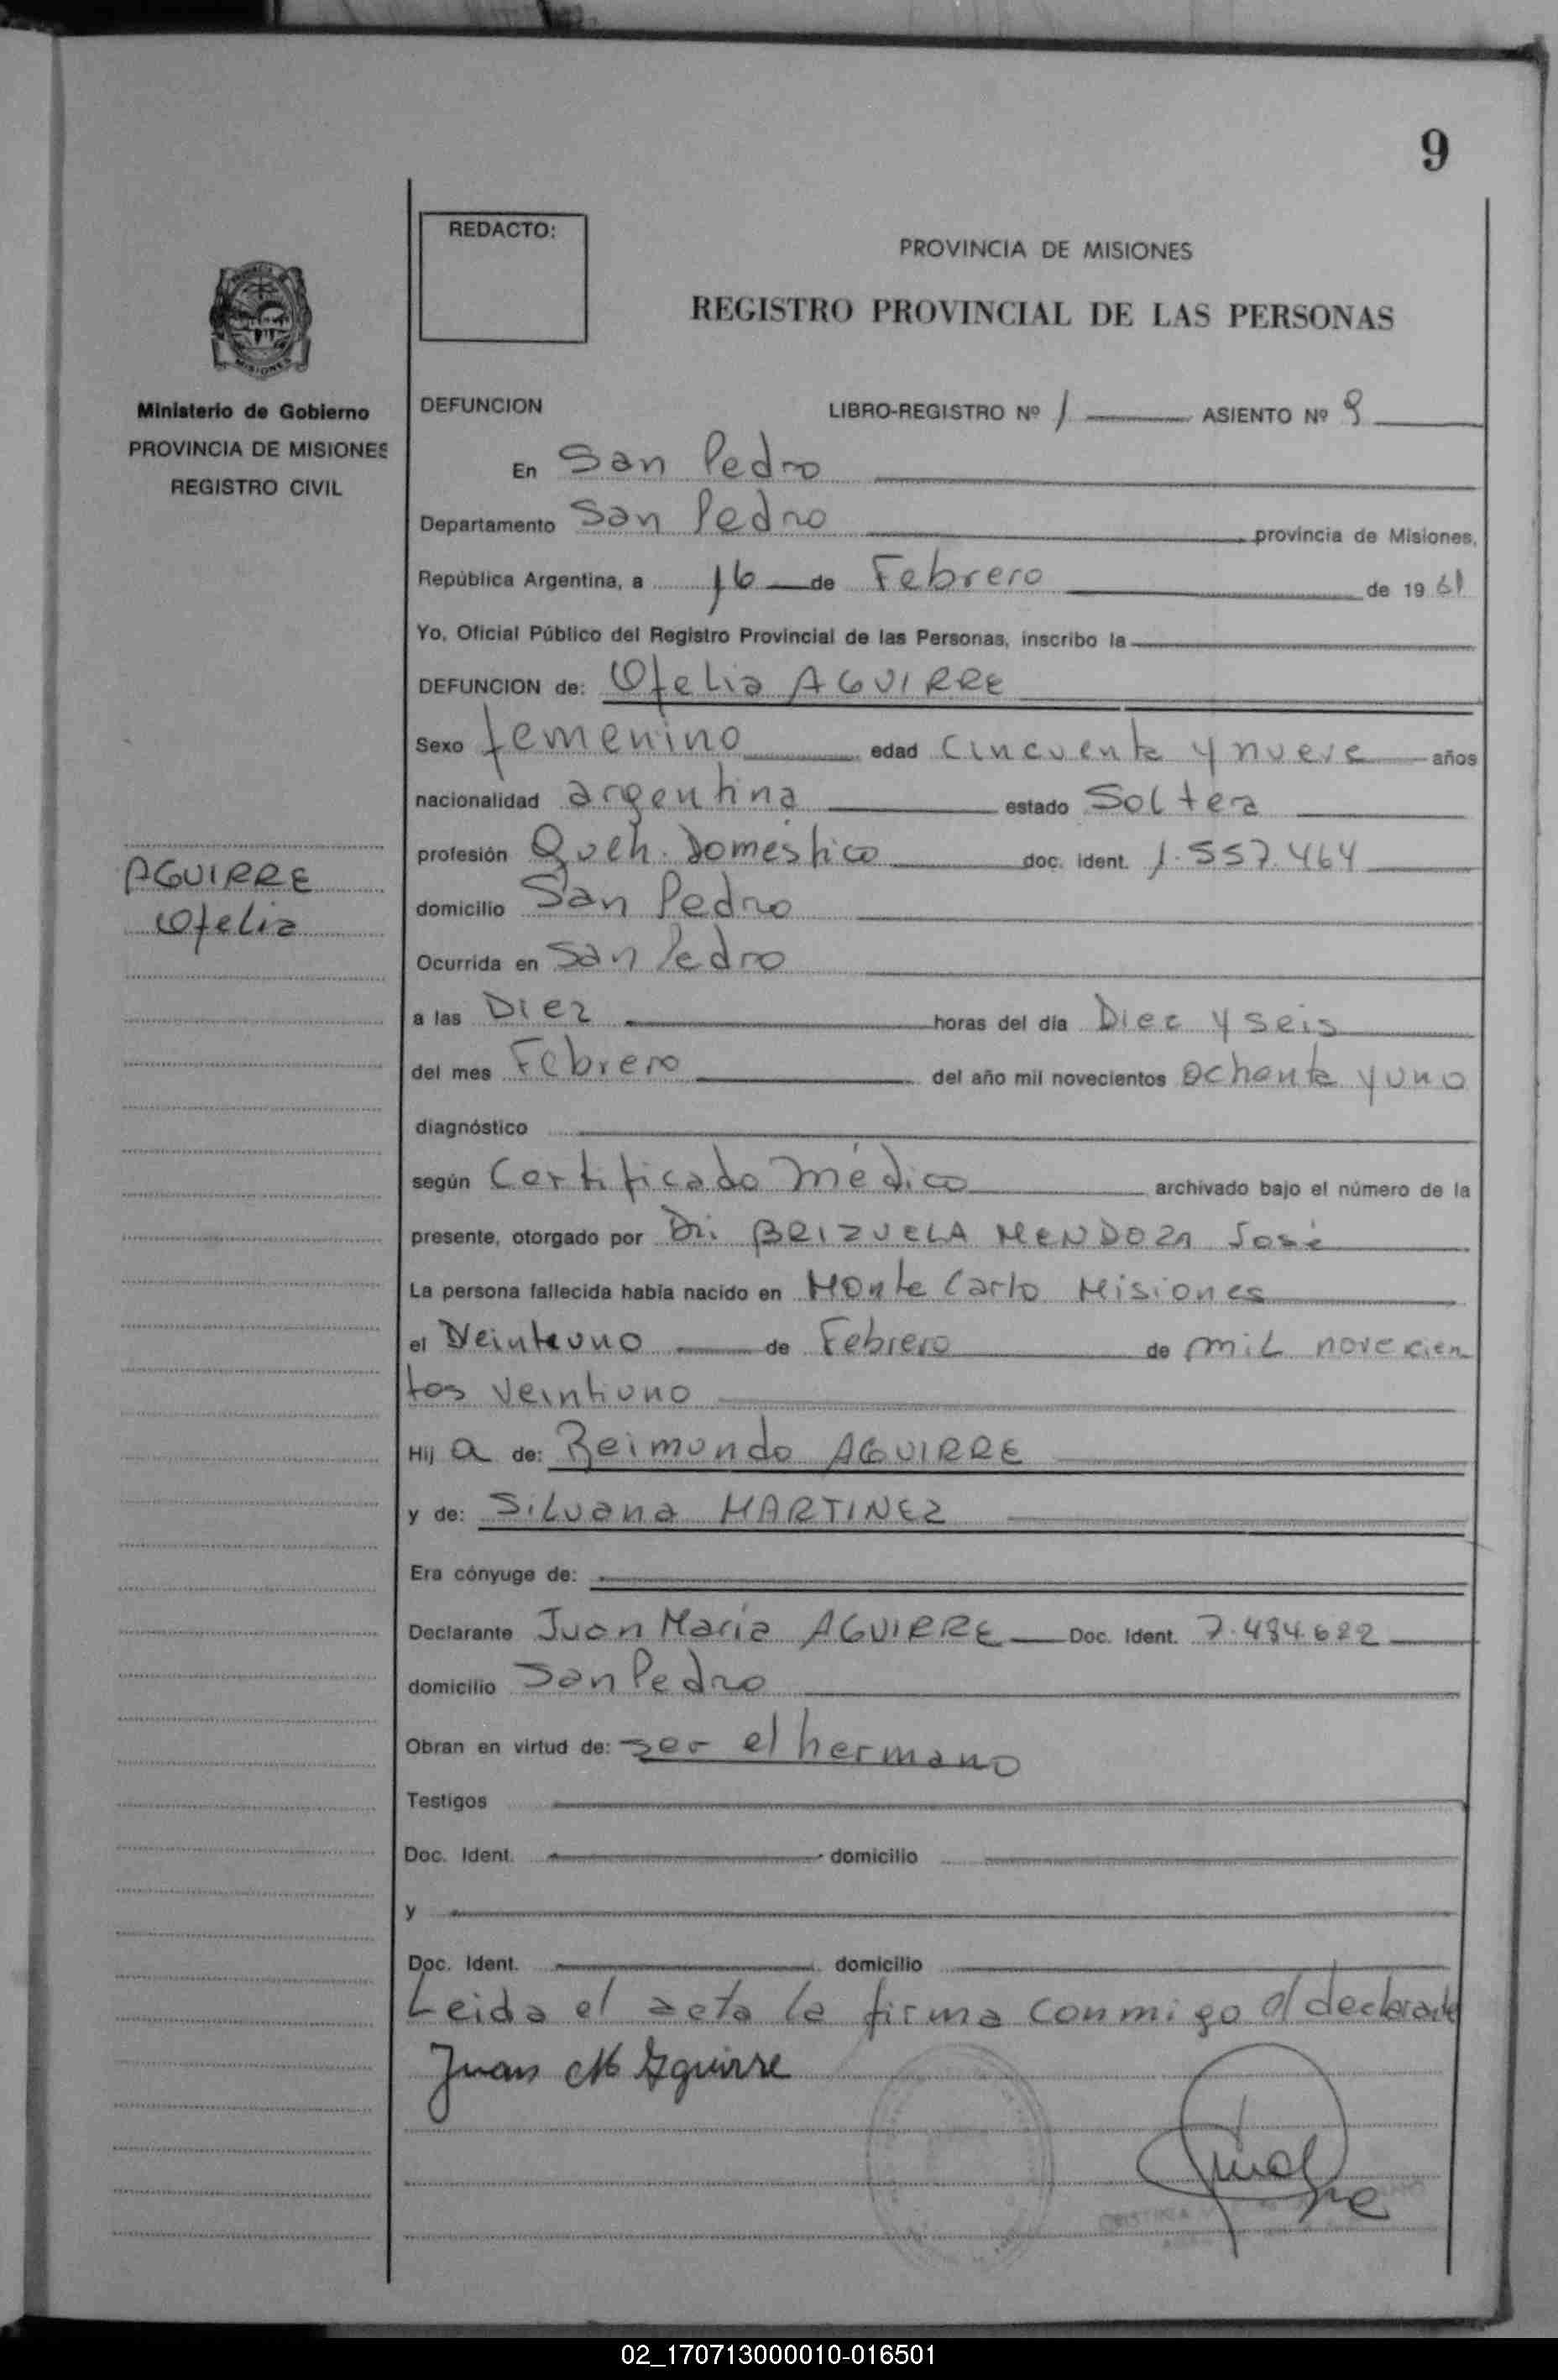 9
REDACTO:
PROVINCIA DE MISIONES
REGISTRO PROVINCIAL DE LAS PERSONAS
MISIONES
Ministerio de Gobierno
PROVINCIA DE MISIONES
REGISTRO CIVIL
AGUIRRE
Ofelia
DEFUNCION LIBRO-REGISTRO Nº 1 ASIENTO Nº 9
En San Pedro
Departamento San Pedro provincia de Misiones,
República Argentina, a 16 de Febrero de 19 81
Yo, Oficial Público del Registro Provincial de las Personas, inscribo la
DEFUNCION de: Ofelia AGUIRRE
Sexo femenino edad cincuenta y nueve años
nacionalidad argentina estado Soltera
profesión Queh. Doméstico doc. ident. 1.557.464
domicilio San Pedro
Ocurrida en San Pedro
a las Diez horas del día Diez y seis
del mes Febrero del año mil novecientos ochenta y uno
diagnóstico
según Certificado médico archivado bajo el número de la
presente, otorgado por Dr. BRIZUELA MENDOZA José
La persona fallecida había nacido en Monte Carlo Misiones
el Veinteuno de Febrero de mil novecien
tos veintiuno
Hij a de: Reimundo AGUIRRE
y de: Silvana MARTINEZ
Era cónyuge de:
Declarante Juan María AGUIRRE Doc. Ident. 7.484.622
domicilio San Pedro
Obran en virtud de: ser el hermano
Testigos
Doc. Ident. domicilio
y
Doc. Ident. domicilio
Leida el acta la firma conmigo el declarante
Juan M Aguirre
CRISTINA
02_170713000010-016501